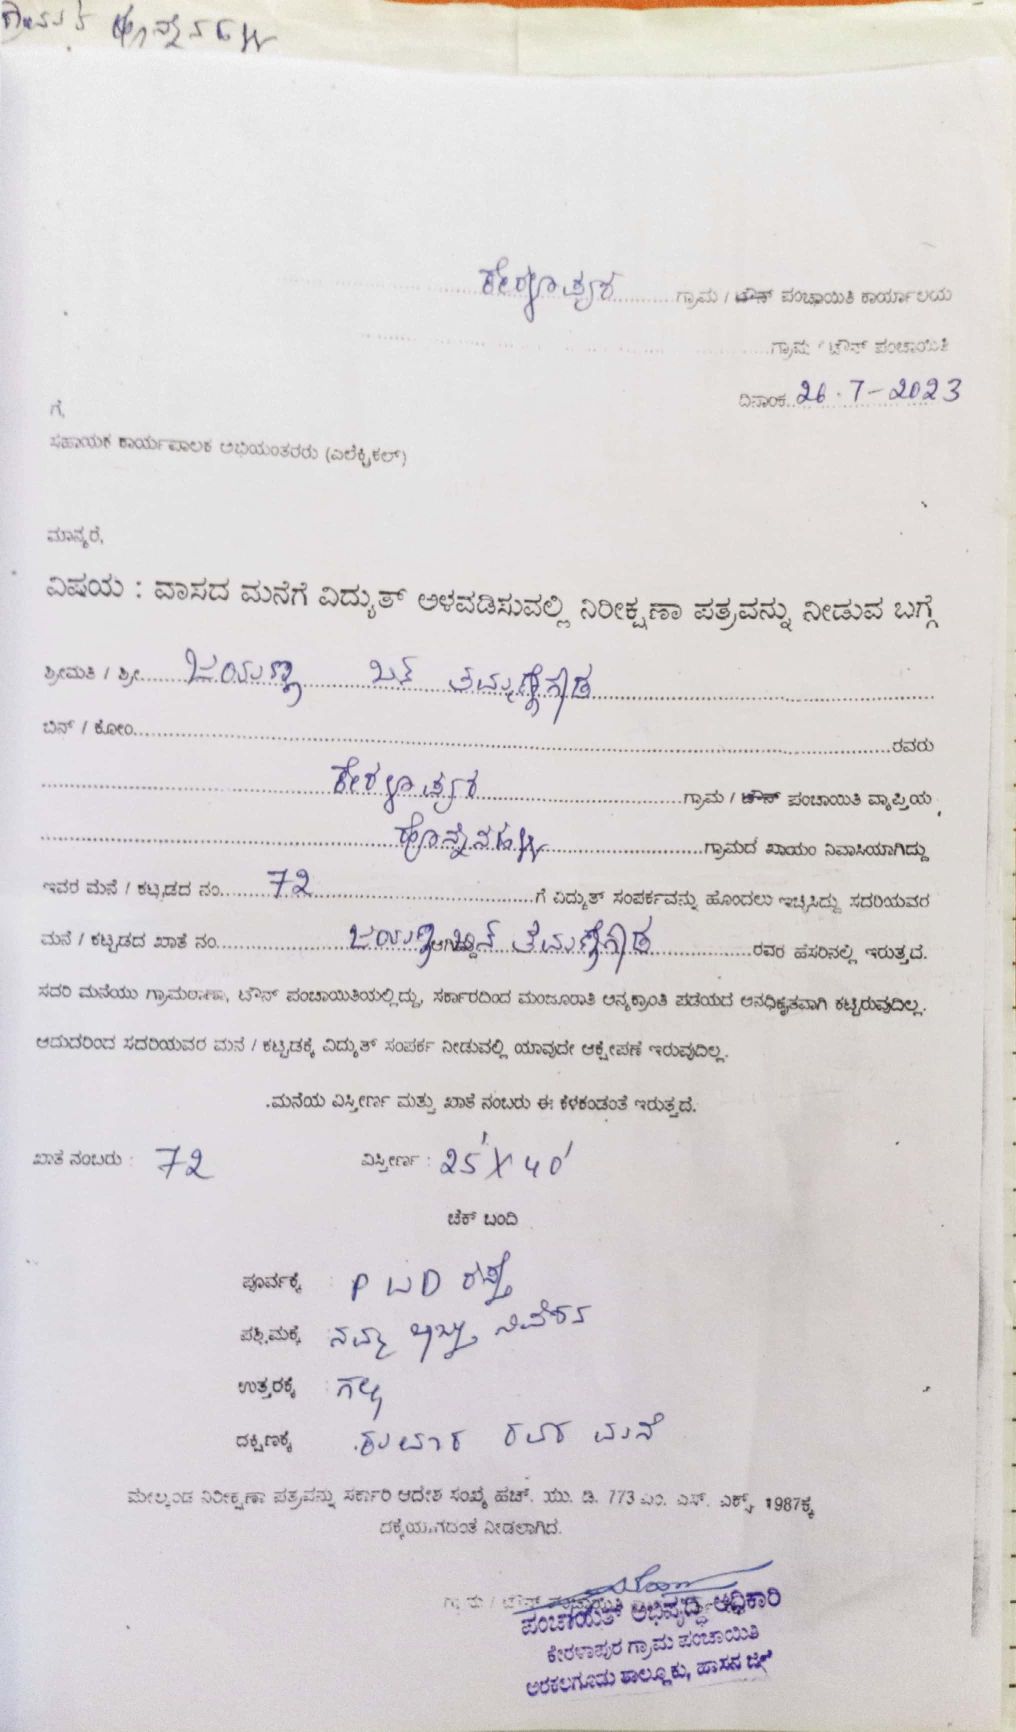 ಹೊನ್ನೆನಹಳ್ಳಿ
ಕೇರಳಾಪುರ ಗ್ರಾಮ / ಟೌನ್ ಪಂಚಾಯಿತಿ ಕಾರ್ಯಾಲಯ
ಗ್ರಾಮ / ಟೌನ್ ಪಂಚಾಯಿತಿ
ದಿನಾಂಕ 26.7-2023
ಗೆ,
ಸಹಾಯಕ ಕಾರ್ಯಪಾಲಕ ಅಭಿಯಂತರರು (ಎಲೆಕ್ಟ್ರಿಕಲ್)
ಮಾನ್ಯರೆ,
ವಿಷಯ : ವಾಸದ ಮನೆಗೆ ವಿದ್ಯುತ್ ಅಳವಡಿಸುವಲ್ಲಿ ನಿರೀಕ್ಷಣಾ ಪತ್ರವನ್ನು ನೀಡುವ ಬಗ್ಗೆ
ಶ್ರೀಮತಿ / ಶ್ರೀ ಜಯಣ್ಣ ಬಿನ್ ತಿಮ್ಮಣ್ಣೆಗೌಡ
ಬಿನ್ / ಕೋಂ ರವರು
ಕೇರಳಾಪುರ ಗ್ರಾಮ / ಟೌನ್ ಪಂಚಾಯಿತಿ ವ್ಯಾಪ್ತಿಯ
ಹೊನ್ನೆನಹಳ್ಳಿ ಗ್ರಾಮದ ಖಾಯಂ ನಿವಾಸಿಯಾಗಿದ್ದು
ಇವರ ಮನೆ / ಕಟ್ಟಡದ ನಂ 72 ಗೆ ವಿದ್ಯುತ್ ಸಂಪರ್ಕವನ್ನು ಹೊಂದಲು ಇಚ್ಛಿಸಿದ್ದು ಸದರಿಯವರ
ಮನೆ / ಕಟ್ಟಡದ ಖಾತೆ ನಂ ಜಯಣ್ಣ ಆಗಿದ್ದು ಬಿನ್ ತಿಮ್ಮಣ್ಣೆಗೌಡ ರವರ ಹೆಸರಿನಲ್ಲಿ ಇರುತ್ತದೆ.
ಸದರಿ ಮನೆಯು ಗ್ರಾಮಠಾಣಾ, ಟೌನ್ ಪಂಚಾಯಿತಿಯಲ್ಲಿದ್ದು, ಸರ್ಕಾರದಿಂದ ಮಂಜೂರಾತಿ ಅನ್ಯಕ್ರಾಂತಿ ಪಡೆಯದೆ ಅನಧಿಕೃತವಾಗಿ ಕಟ್ಟಿರುವುದಿಲ್ಲ.
ಆದುದರಿಂದ ಸದರಿಯವರ ಮನೆ / ಕಟ್ಟಡಕ್ಕೆ ವಿದ್ಯುತ್ ಸಂಪರ್ಕ ನೀಡುವಲ್ಲಿ ಯಾವುದೇ ಆಕ್ಷೇಪಣೆ ಇರುವುದಿಲ್ಲ.
ಮನೆಯ ವಿಸ್ತೀರ್ಣ ಮತ್ತು ಖಾತೆ ನಂಬರು ಈ ಕೆಳಕಂಡಂತೆ ಇರುತ್ತದೆ.
ಖಾತೆ ನಂಬರು : 72 ವಿಸ್ತೀರ್ಣ : 25' X 40'
ಚೆಕ್ ಬಂದಿ
ಪೂರ್ವಕ್ಕೆ : PWD ರಸ್ತೆ
ಪಶ್ಚಿಮಕ್ಕೆ : ನಿವೇಶನ
ಉತ್ತರಕ್ಕೆ : ಗಲ್ಲಿ
ದಕ್ಷಿಣಕ್ಕೆ ಕುಮಾರ ರವರ ಮನೆ
ಮೇಲ್ಕಂಡ ನಿರೀಕ್ಷಣಾ ಪತ್ರವನ್ನು ಸರ್ಕಾರಿ ಆದೇಶ ಸಂಖ್ಯೆ ಹೆಚ್. ಯು. ಡಿ. 773 ಎಂ. ಎನ್. ಎಕ್ಸ್. 1987ಕ್ಕೆ
ನೀಡಲಾಗಿದೆ.
ಗ್ರಾಮ / ಟೌನ್ ಪಂಚಾಯಿತಿ
ಪಂಚಾಯತ್ ಅಭಿವೃದ್ಧಿ ಅಧಿಕಾರಿ
ಕೇರಳಾಪುರ ಗ್ರಾಮ ಪಂಚಾಯಿತಿ
ಅರಕಲಗೂಡು ತಾಲ್ಲೂಕು, ಹಾಸನ ಜಿಲ್ಲೆ